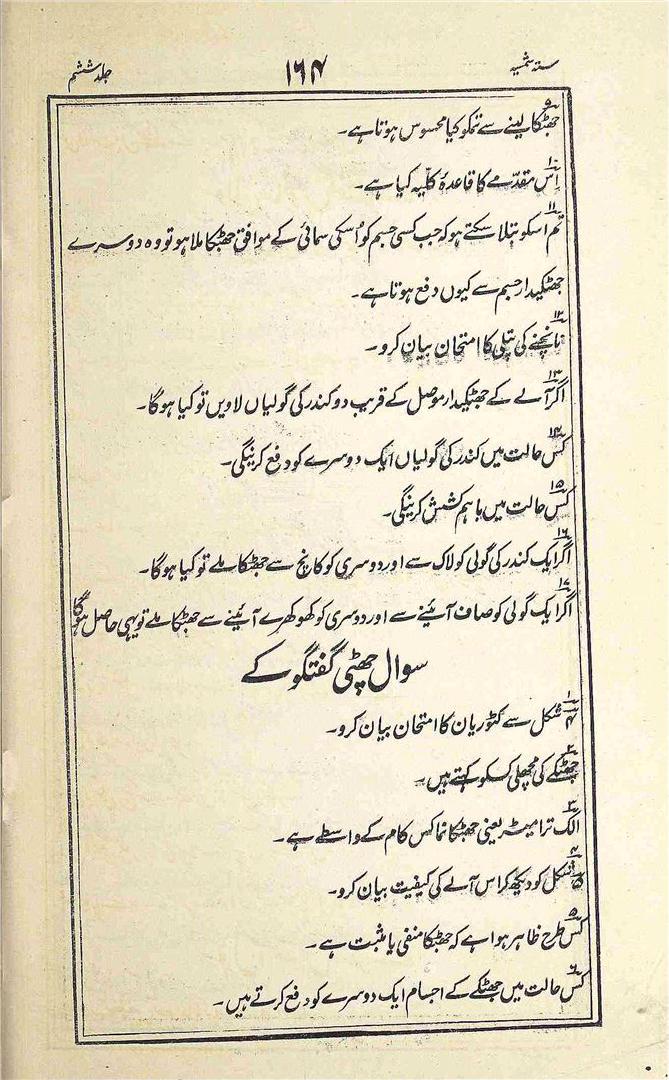 ستہ شمسیہ ۱۶۴ جلد ششم
۹ جھٹکا لینے سے تمکو کیا محسوس ہوتا ہے۔
۱۰ اس مقدمے کا قاعدۂ کلّیہ کیا ہے۔
۱۱ تم اسکو بتلا سکتے ہو کہ جب کسی جسم کو اُسکی سمائی کے موافق جھٹکا ملا ہو تو وہ دوسرے
جھٹکیدار جسم سے کیوں دفع ہوتا ہے۔
۱۲ نانچنے کی پتلی کا امتحان بیان کرو۔
۱۳ اگر آلے کے جھٹکیدار موصل کے قریب دو کندر کی گولیاں لاویں تو کیا ہوگا۔
۱۴ کس حالت میں کندر کی گولیاں ایک دوسرے کو دفع کرینگی۔
۱۵ کس حالت میں باہم کشش کرینگی۔
۱۶ اگر ایک کندر کی گولی کو لاک سے اور دوسری کو کانچ سے جھٹکا ملے تو کیا ہوگا۔
۱۷ اگر ایک گولی کو صاف آئینے سے اور دوسری کو کھوکھرے آئینے سے جھٹکا ملے تو یہی حاصل ہوگا
سوال چھٹی گفتگو کے
۱ ۴ شکل سے کٹوریان کا امتحان بیان کرو۔
۲ جھٹکے کی مچھلی کسکو کہتے ہیں۔
۳ الک ترامیٹر یعنی جھٹکا نما کس کام کے واسطے ہے۔
۴ ۵ شکل کو دیکھ کر اس آلے کی کیفیت بیان کرو۔
۵ کس طرح ظاہر ہوا ہے کہ جھٹکا منفی یا مثبت ہے۔
۶ کس حالت میں جھٹکے کے اجسام ایک دوسرے کو دفع کرتے ہیں۔